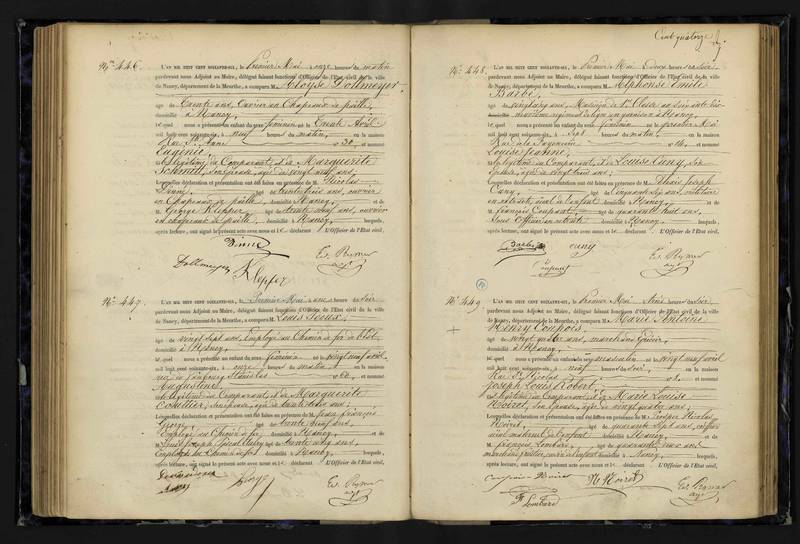 N° 446.
L'AN MIL HUIT CENT SOIXANTE-SIX, le Premier Mai à onze heures du matin
pardevant nous Adjoint au Maire, délégué faisant fonctions d'Officier de l'Etat civil de la ville
de Nancy, département de la Meurthe, a comparu M. Aloyse Dollmeyer,
âgé de trente ans, ouvrier en Chapeaux de paille,
domicilié à Nancy,
lequel nous a présenté un enfant du sexe féminin né le trente Avril
mil huit cent soixante-six, à neuf heures du matin, en la maison
Rue Ste Anne n° 30, et nommé
Eugénie,
fille légitime du Comparant, et de Marguerite
Schmitt, son épouse, âgée de vingt neuf ans;
Lesquelles déclaration et présentation ont été faites en présence de M. Nicolas
âgé de trente trois ans, ouvrier
en Chapeaux de paille, domicilié à Nancy, et de
M. George Klepper, âgé de trente neuf ans, ouvrier
en chapeaux de paille, domicilié à Nancy, lesquels,
après lecture, ont signé le présent acte avec nous et le déclarant. L'Officier de l'Etat civil,
Dollmeyer
Klepper
Ed. Reymer
ajt
N° 447.
L'AN MIL HUIT CENT SOIXANTE-SIX, le Premier Mai à une heure du soir
pardevant nous Adjoint au Maire, délégué faisant fonctions d'Officier de l'Etat civil de la ville
de Nancy, département de la Meurthe, a comparu M. Louis
âgé de vingt sept ans, Employé au Chemin de fer de l'Est,
domicilié à Nancy,
lequel nous a présenté un enfant du sexe féminin né le vingt neuf avril
mil huit cent soixante-six, à onze heures du matin, en la maison
rue du faubourg Stanislas n° et nommé
Augustine,
fille légitime du Comparant, et de Marguerite
son épouse, âgée de trente ans;
Lesquelles déclaration et présentation ont été faites en présence de M. Jean François
âgé de trente neuf ans,
Employé au Chemin de fer, domicilié à Nancy, et de
M. Louis Joseph âgé de trente cinq ans,
Employé au Chemin de fer, domicilié à Nancy, lesquels,
après lecture, ont signé le présent acte avec nous et le déclarant. L'Officier de l'Etat civil,
Ed. Reymer
ajt
Cent quatorze
N° 448.
L'AN MIL HUIT CENT SOIXANTE-SIX, le Premier Mai à deux heures du soir
pardevant nous Adjoint au Maire, délégué faisant fonctions d'Officier de l'Etat civil de la ville
de Nancy, département de la Meurthe, a comparu M. Alphonse Emile
Barbe,
âgé de vingt cinq ans, Musicien de 1re Classe au
régiment de ligne en garnison à Nancy,
lequel nous a présenté un enfant du sexe féminin né le premier Mai
mil huit cent soixante-six, à sept heures du matin, en la maison
Rue de la Pépinière n° 14, et nommé
Louise Jeanne,
fille légitime du Comparant, et de Louise Cuny, son
Epouse, âgée de vingt trois ans;
Lesquelles déclaration et présentation ont été faites en présence de M. Alexis Joseph
Cuny, âgé de cinquante six ans, militaire
en retraite, aïeul de l'enfant domicilié à Nancy, et de
M. François Coupant, âgé de quarante huit ans,
Sous Officier en retraite, domicilié à Nancy, lesquels,
après lecture, ont signé le présent acte avec nous et le déclarant. L'Officier de l'Etat civil,
Barbe
cuny
Coupant
Ed. Reymer
ajt
N° 449.
L'AN MIL HUIT CENT SOIXANTE-SIX, le Premier Mai à trois heures du soir
pardevant nous Adjoint au Maire, délégué faisant fonctions d'Officier de l'Etat civil de la ville
de Nancy, département de la Meurthe, a comparu M. Marie Antoine
Henry
âgé de vingt quatre ans, marchand Epicier,
domicilié à Nancy,
lequel nous a présenté un enfant du sexe masculin né le vingt neuf avril
mil huit cent soixante-six, à neuf heures du soir, en la maison
Rue St Nicolas n° et nommé
Joseph Louis Robert,
fils légitime du Comparant, et de Marie Louise
Noirel, son épouse, âgée de vingt quatre ans;
Lesquelles déclaration et présentation ont été faites en présence de M. Nicolas
Noirel, âgé de quarante sept ans,
aïeul maternel de l'enfant domicilié à Nancy, et de
M. François Lombard, âgé de quarante ans,
domicilié à Nancy, lesquels,
après lecture, ont signé le présent acte avec nous et le déclarant. L'Officier de l'Etat civil,
N Noirel
Ed. Reymer
ajt
F Lombard